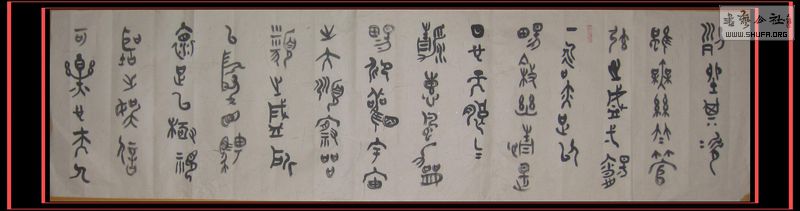 列坐其次
雖無絲竹管
弦之盛一觴
一詠亦足以
暢敘幽情是
日也天朗氣
清惠風和
暢仰觀宇宙
之大俯察品
類之盛所
以遊目騁
懷足以極視
聽之娛信
可樂也夫人
公社
WWW.SHUFA.ORG